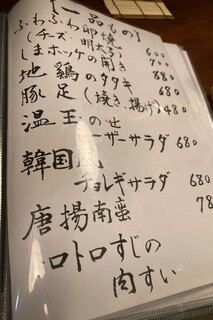 【一品もの】
ふわふわ卵焼 600
（チーズ・明太子） 700
しまホッケの開き 880
地鶏のタタキ 680
豚足（焼き・揚げ）480
温玉のせ
ーザーサラダ 680
韓国風
チョレギサラダ 680
唐揚南蛮 78
トロトロすじの
肉すい